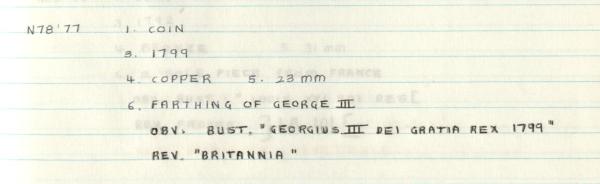 N78'77 1. COIN
3. 1799
4. COPPER 5. 23 mm
6. FARTHING OF GEORGE III
OBV. BUST. "GEORGIUS III DEI GRATIA REX 1799"
REV. "BRITANNIA"